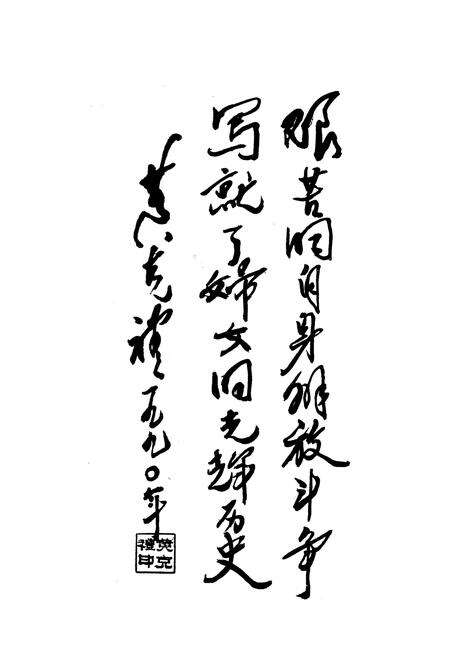 艰苦的自身解放斗争
写就了婦女的光辉历史
克禮一九九〇年
克
禮印